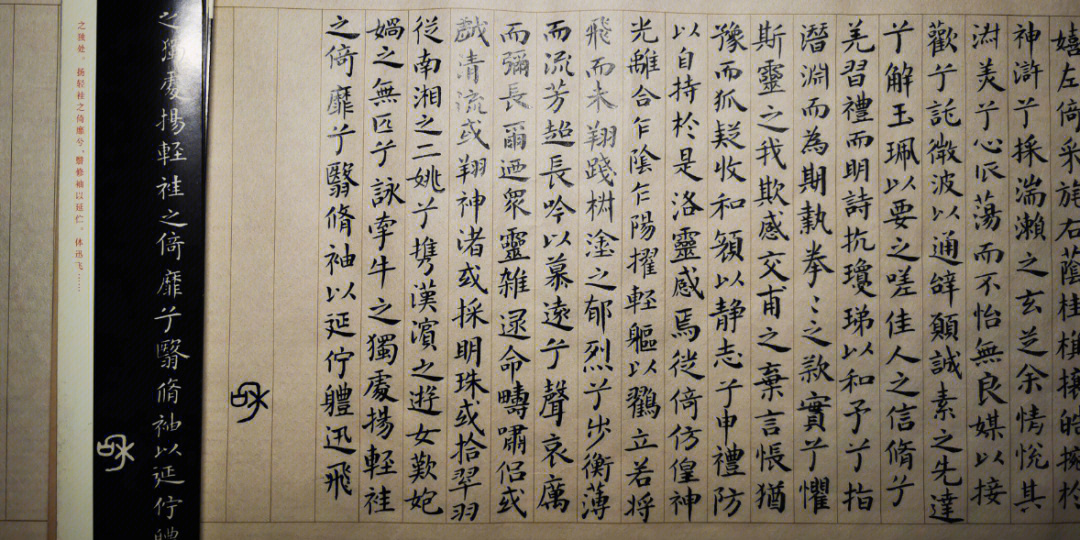 嬉左倚采旄右蔭桂旗攘皓捥於
神滸兮採湍瀨之玄芝余情悅其
淑美兮心振蕩而不怡無良媒以接
歡兮託微波以通辭願誠素之先達
兮解玉珮以要之嗟佳人之信脩兮
羌習禮而明詩抗瓊珶以和予兮指
潛淵而為期執拳〻之款實兮懼
斯靈之我欺感交甫之棄言悵猶
豫而狐疑收和顏以静志兮申禮防
以自持於是洛靈感焉徙倚仿偟神
光離合乍陰乍陽擢輕軀以鸖立若將
飛而未翔踐椒塗之郁烈兮步衡薄
而流芳超長吟以慕遠兮聲哀厲
而彌長爾迺眾靈雜遝命疇嘯侶或
戲清流或翔神渚或採明珠或拾翠羽
從南湘之二姚兮攜漢濱之遊女歎匏
媧之無匹兮詠牽牛之獨處揚輕袿
之倚靡兮翳脩袖以延佇體迅飛
之獨處揚輕袿之倚靡兮翳脩袖以延佇體
之独处。扬轻袿之倚靡兮，翳修袖以延伫。体迅飞……